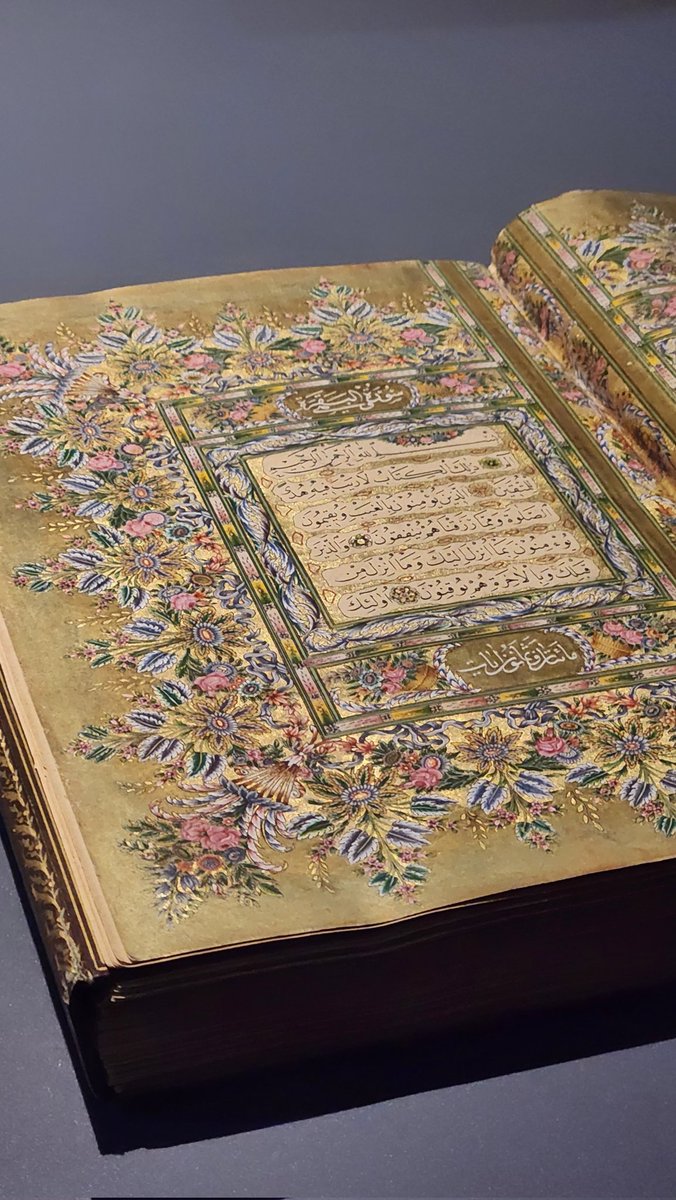 سورة البقرة
بسم الله الرحمن الرحيم
الم ذلك الكتاب لا ريب فيه هدى
للمتقين الذين يؤمنون بالغيب ويقيمون
الصلوة ومما رزقناهم ينفقون والذين
يؤمنون بما انزل اليك وما انزل من
قبلك وبالاخرة هم يوقنون اولئك